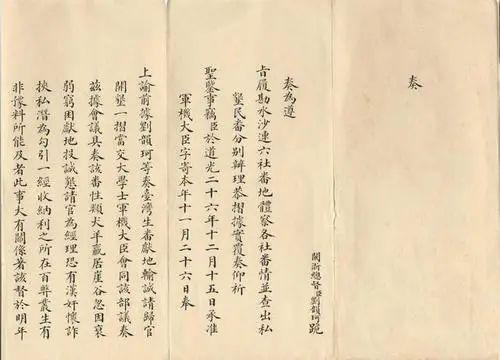 奏
閩浙總督臣劉韻珂跪
奏為遵
旨履勘水沙連六社番地體察各社番情並查出私
墾民番分別辦理恭摺據實覆奏仰祈
聖鑒事竊臣於道光二十六年十二月十五日承准
軍機大臣字寄本年十一月二十六日奉
上諭前據劉韻珂等奏臺灣生番獻地輸誠請歸官
開墾一摺當交大學士軍機大臣會同該部議奏
茲據會議具奏該番性類犬羊巖居崖谷忽因衰
弱窮困獻地投誠懇請官為經理恐有漢奸懷詐
挾私潛為勾引一經收納利之所在百弊叢生有
非豫料所能及者此事大有關係著該督於明年